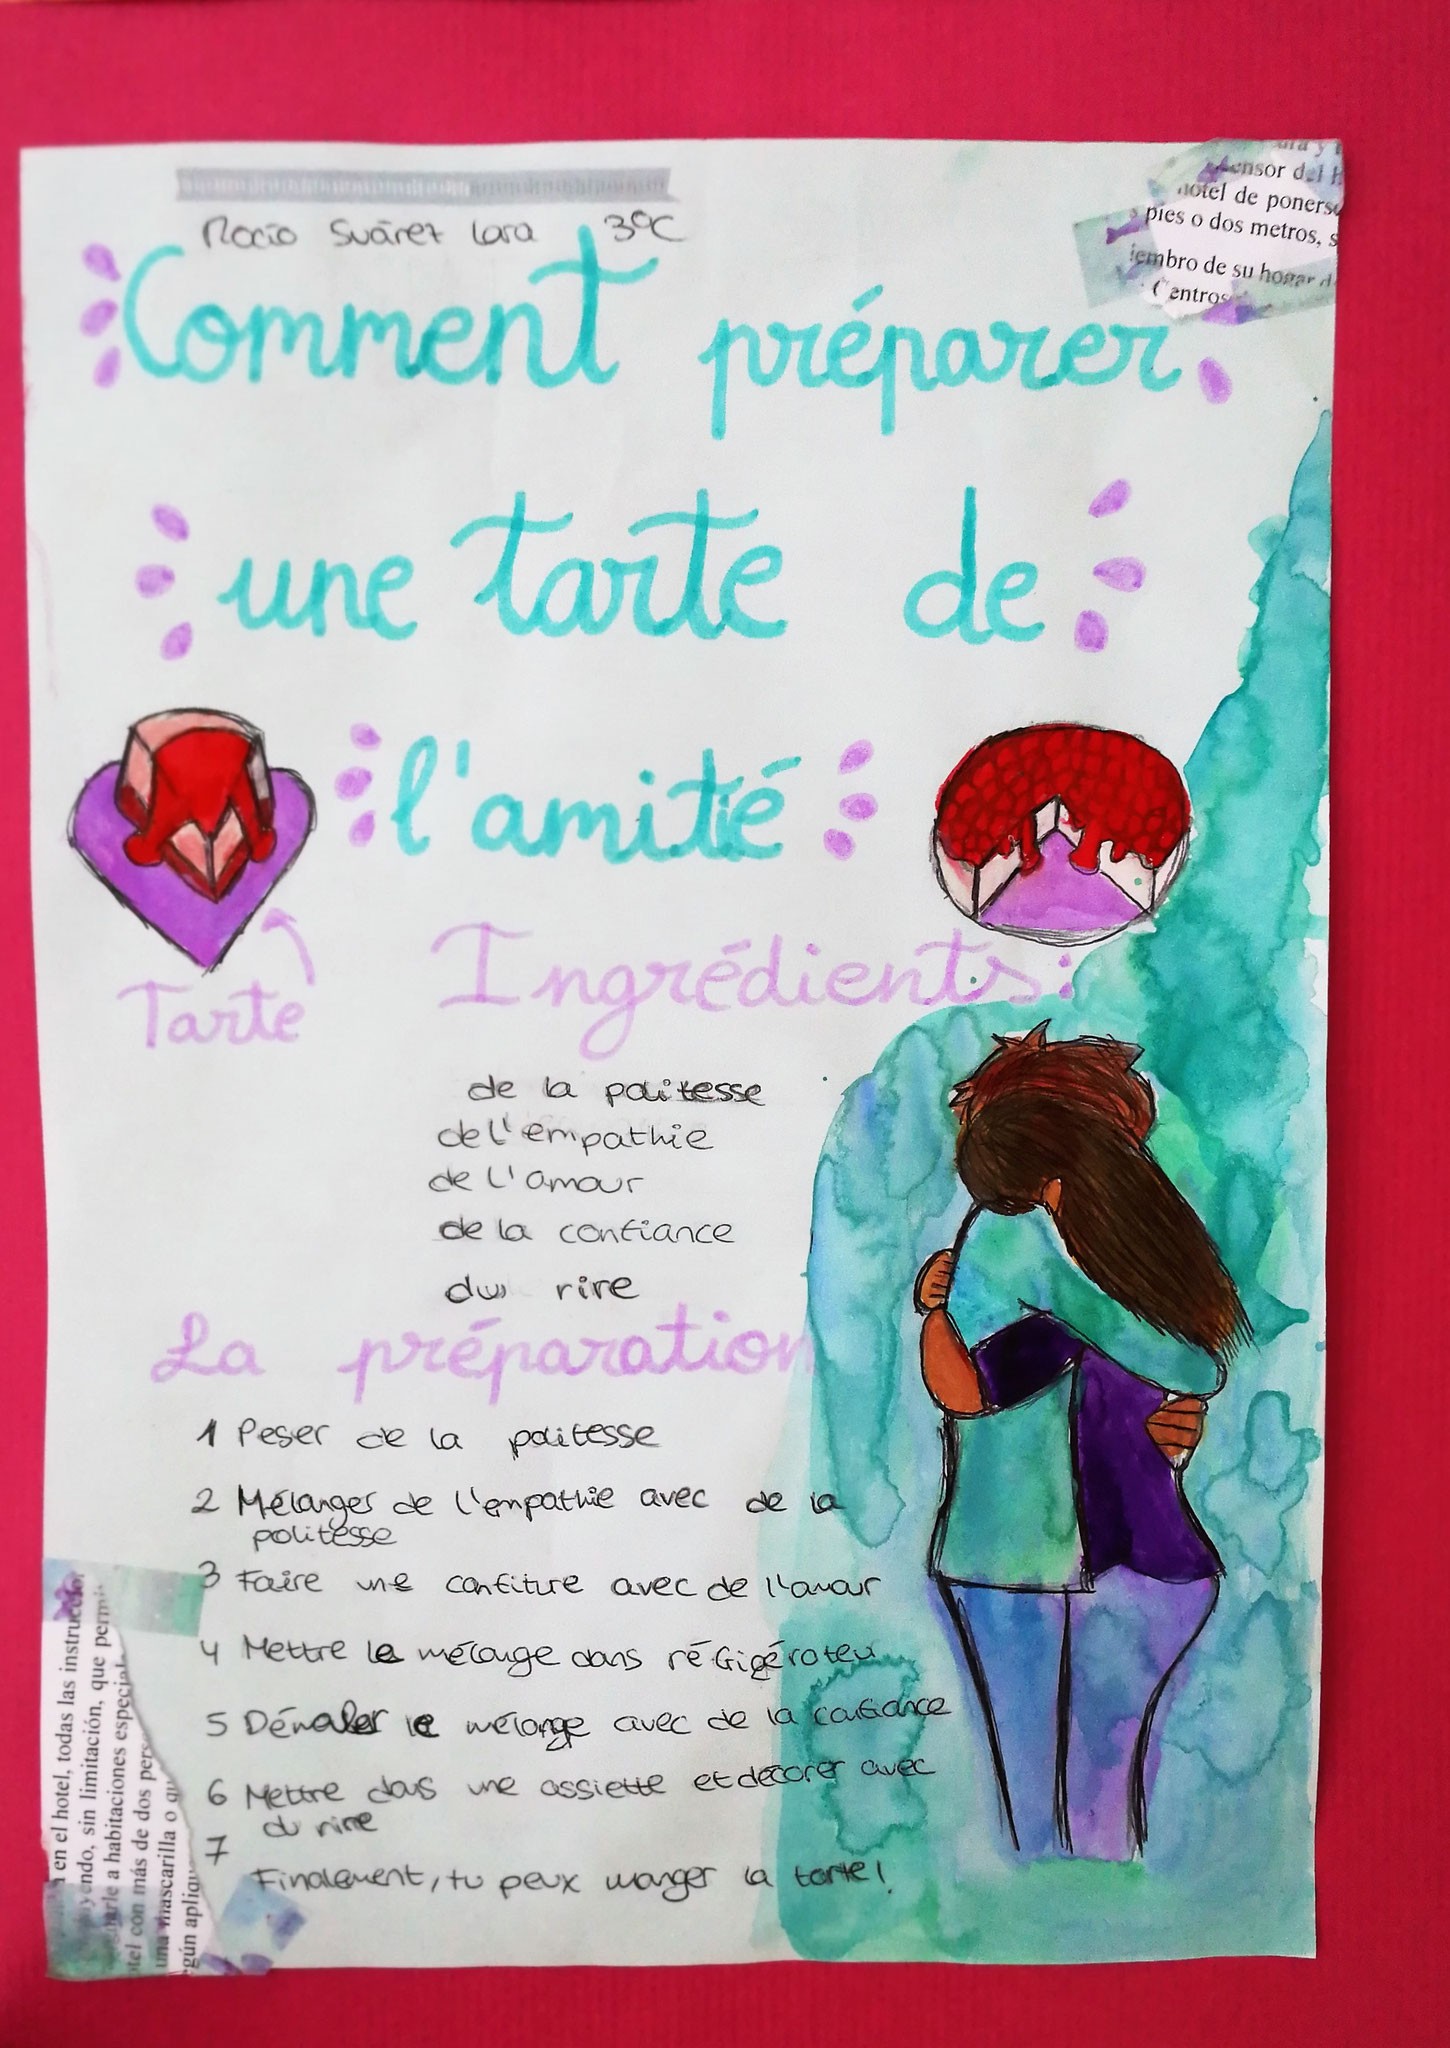 Rocío Suárez Lara 3ºC
Comment préparer
une tarte de
l'amitié
Tarte
Ingrédients:
de la politesse
de l'empathie
de l'amour
de la confiance
du rire
La préparation
1 Peser de la politesse
2 Mélanger de l'empathie avec de la
politesse
3 Faire une confiture avec de l'amour
4 Mettre le mélange dans réfrigérateu
5 Démouler le mélange avec de la confiance
6 Mettre dans une assiette et décorer avec
du rire
7
Finalement, tu peux manger la tarte!
ensor del H
hotel de ponerse
pies o dos metros, s
iembro de su hogar d
Centros
en el hotel, todas las instruccio
yendo, sin limitación, que permi
narle a habitaciones especial
tel con más de dos pers
una mascarilla o qu
egún apliqu